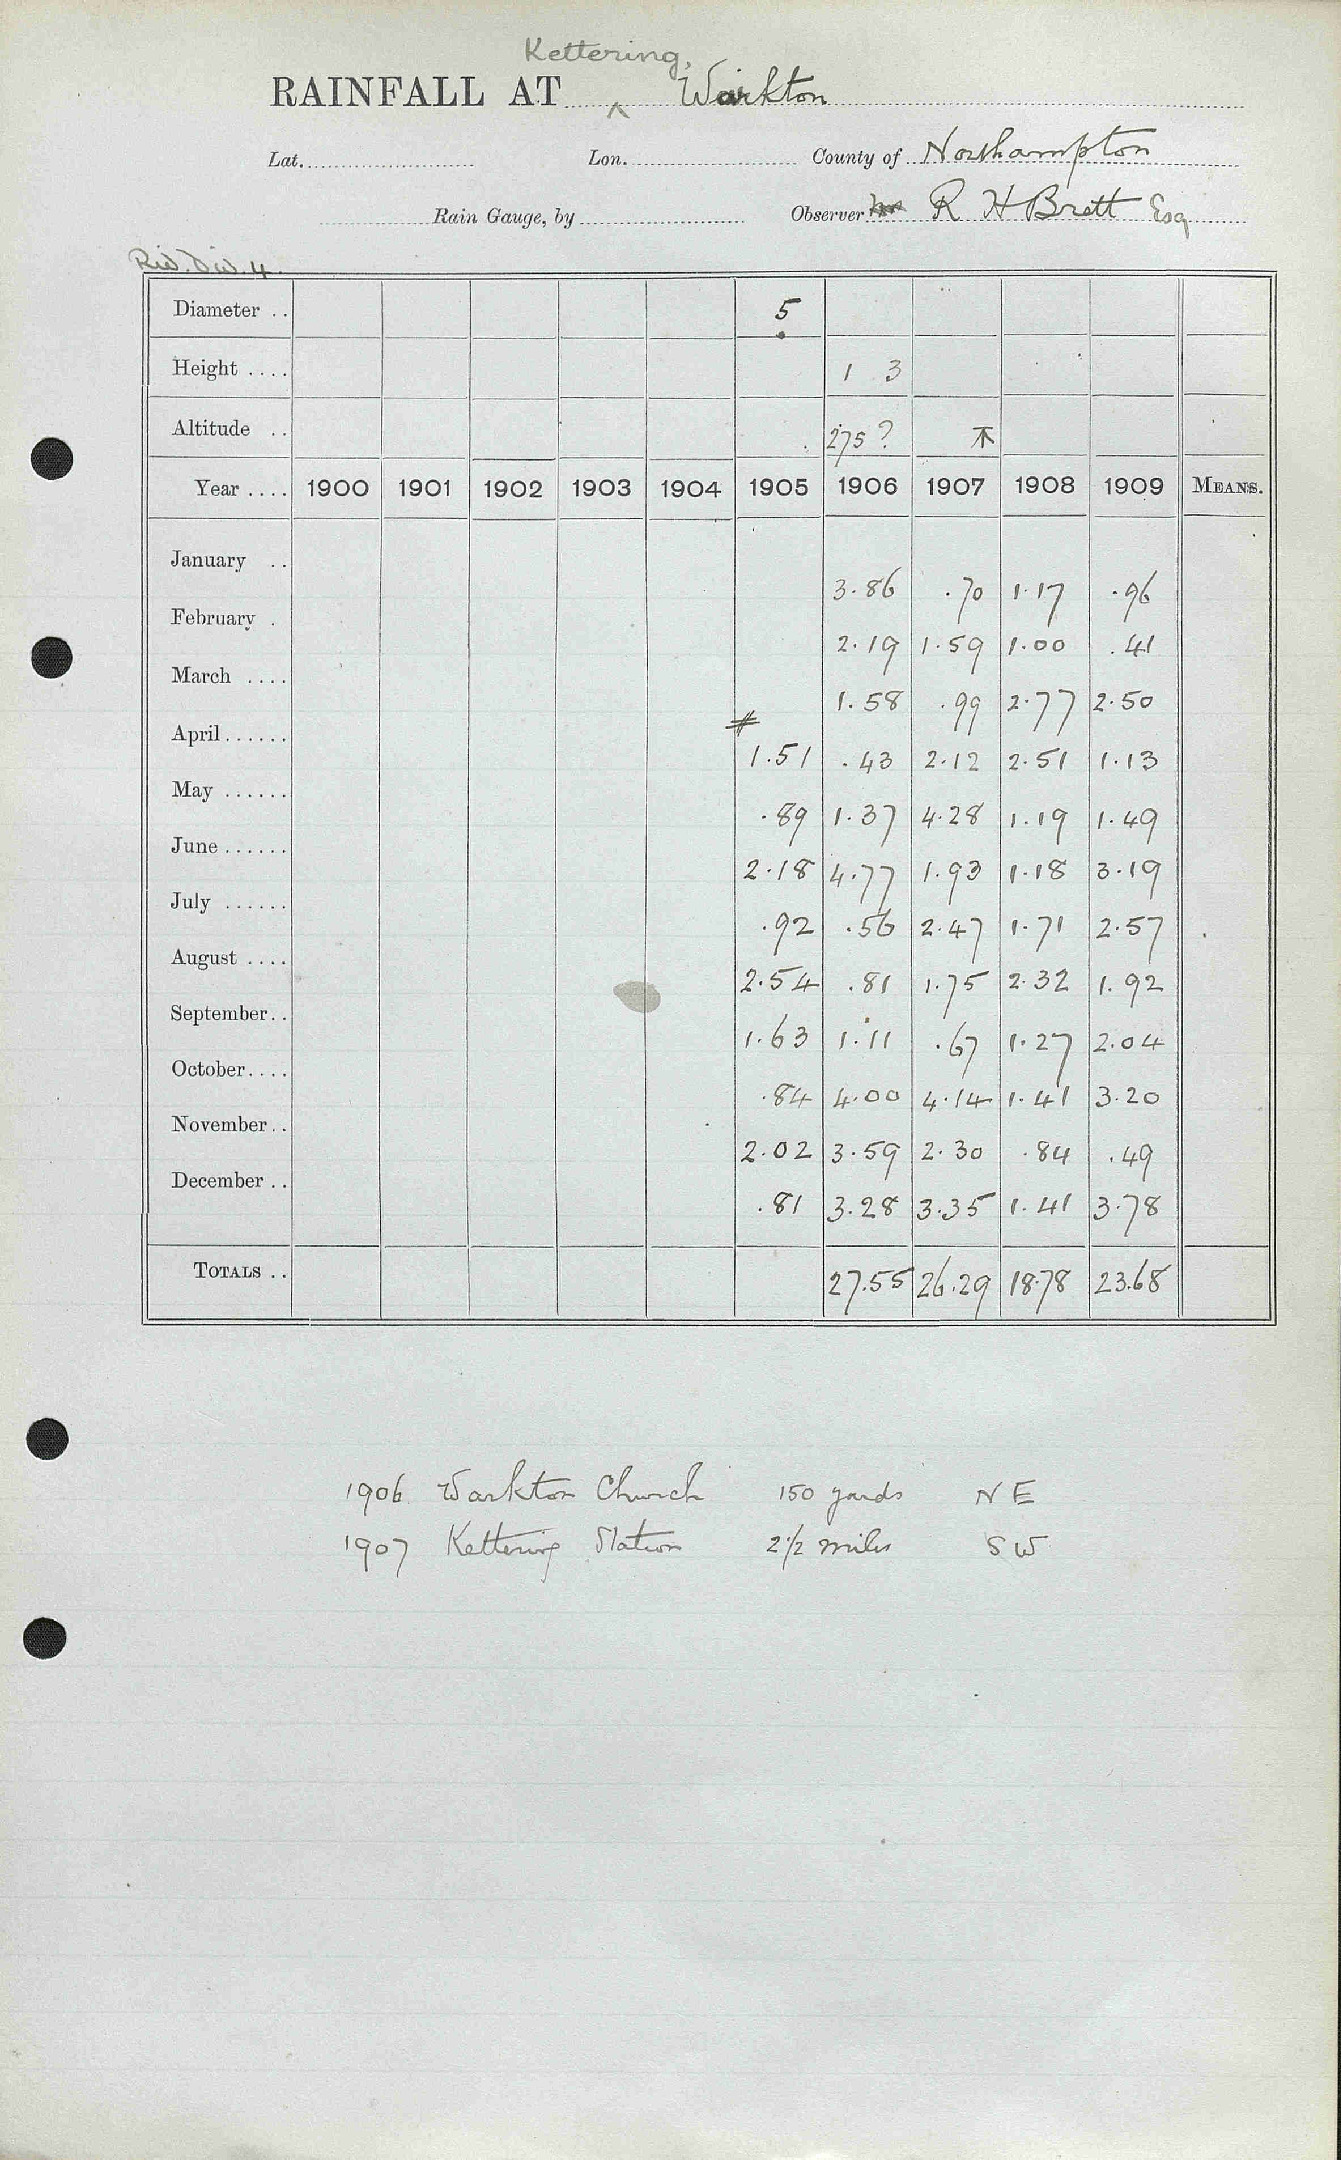 Kettering,
RAINFALL AT ^ Warkton
Lat. Lon. County of Northampton
Rain Gauge, by Observer R H Brett Esq
Riv. Div. 4.
Diameter .. 5
Height .... 1 3
Altitude .. 275 ?
Year .... 1900 1901 1902 1903 1904 1905 1906 1907 1908 1909 MEANS.
January .. 3.86 .70 1.17 .96
February . 2.19 1.59 1.00 .41
March .... 1.58 .99 2.77 2.50
April ...... 1.51 .43 2.12 2.51 1.13
May ...... .89 1.37 4.28 1.19 1.49
June ...... 2.18 4.77 1.93 1.18 3.19
July ...... .92 .56 2.47 1.71 2.57
August .... 2.54 .81 1.75 2.32 1.92
September.. 1.63 1.11 .67 1.27 2.04
October.... .84 4.00 4.14 1.41 3.20
November.. 2.02 3.59 2.30 .84 .49
December .. .81 3.28 3.35 1.41 3.78
TOTALS .. 27.55 26.29 18.78 23.68
1906 Warkton Church 150 yards NE
1907 Kettering Station 2 1/2 miles SW